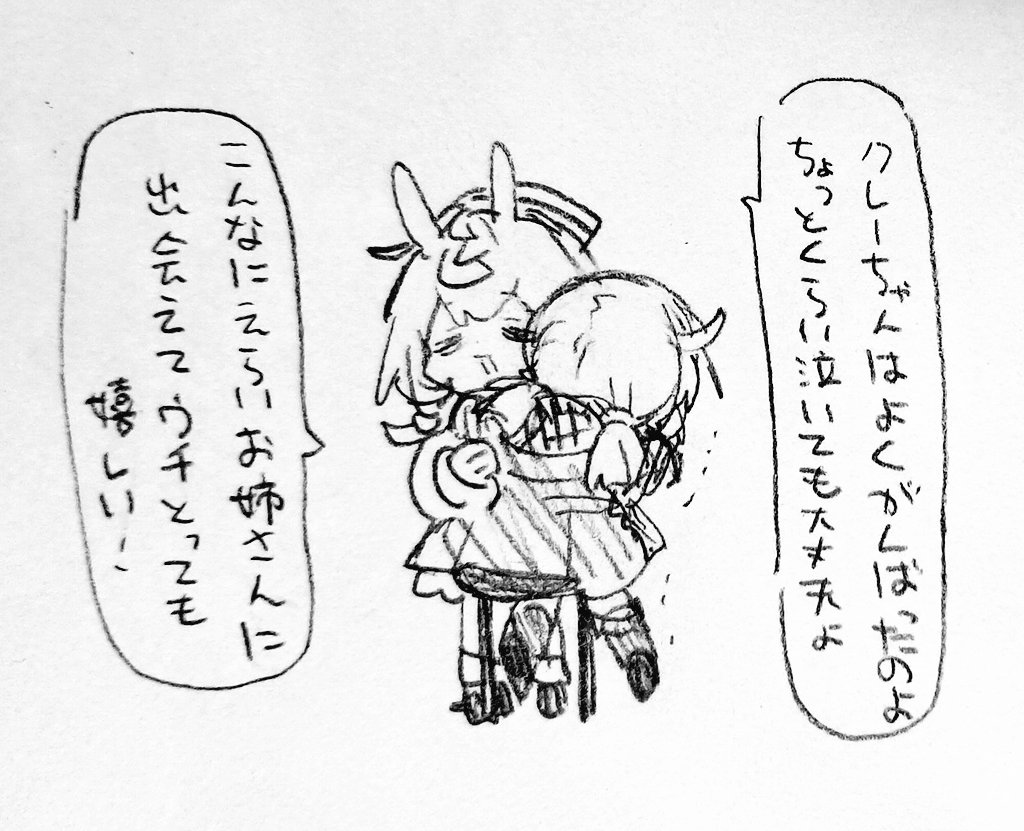 クレーちゃんはよくがんばったのよ
ちょっとくらい泣いても大丈夫よ
こんなにえらいお姉さんに
出会えてウチとっても
嬉しい!